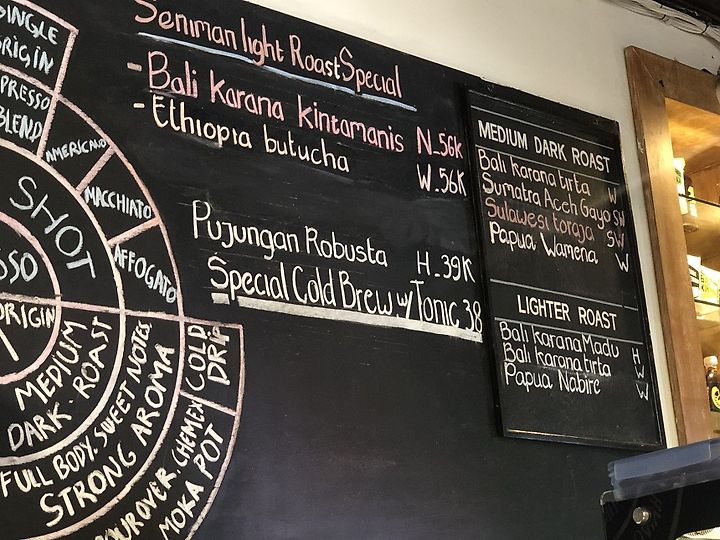 SINGLE
ORIGIN
ESPRESSO
BLEND
AMERICANO
MACCHIATO
AFFOGATO
SHOT
SSO
ORIGIN
MEDIUM
DARK. ROAST
FULL BODY. SWEET NOTES
STRONG AROMA
COLD
DRIP
POUROVER. CHEMEX
MOKA POT
Seniman light Roast Special
- Bali karana kintamanis N_56K
- Ethiopia butucha W_56K
Pujungan Robusta H_39K
Special Cold Brew w/ Tonic 38
MEDIUM DARK ROAST
Bali karana tirta W
Sumatra Aceh Gayo SW
Sulawesi toraja SW
Papua Wamena W
LIGHTER ROAST
Bali karana Madu H
Bali karana tirta W
Papua Nabire W